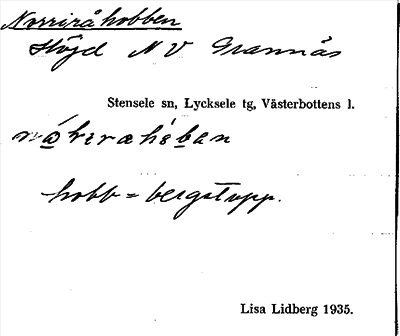 Norriråhobben
Höjd NV Grannäs
Stensele sn, Lycksele tg, Västerbottens l.
hobb = bergstopp.
Lisa Lidberg 1935.